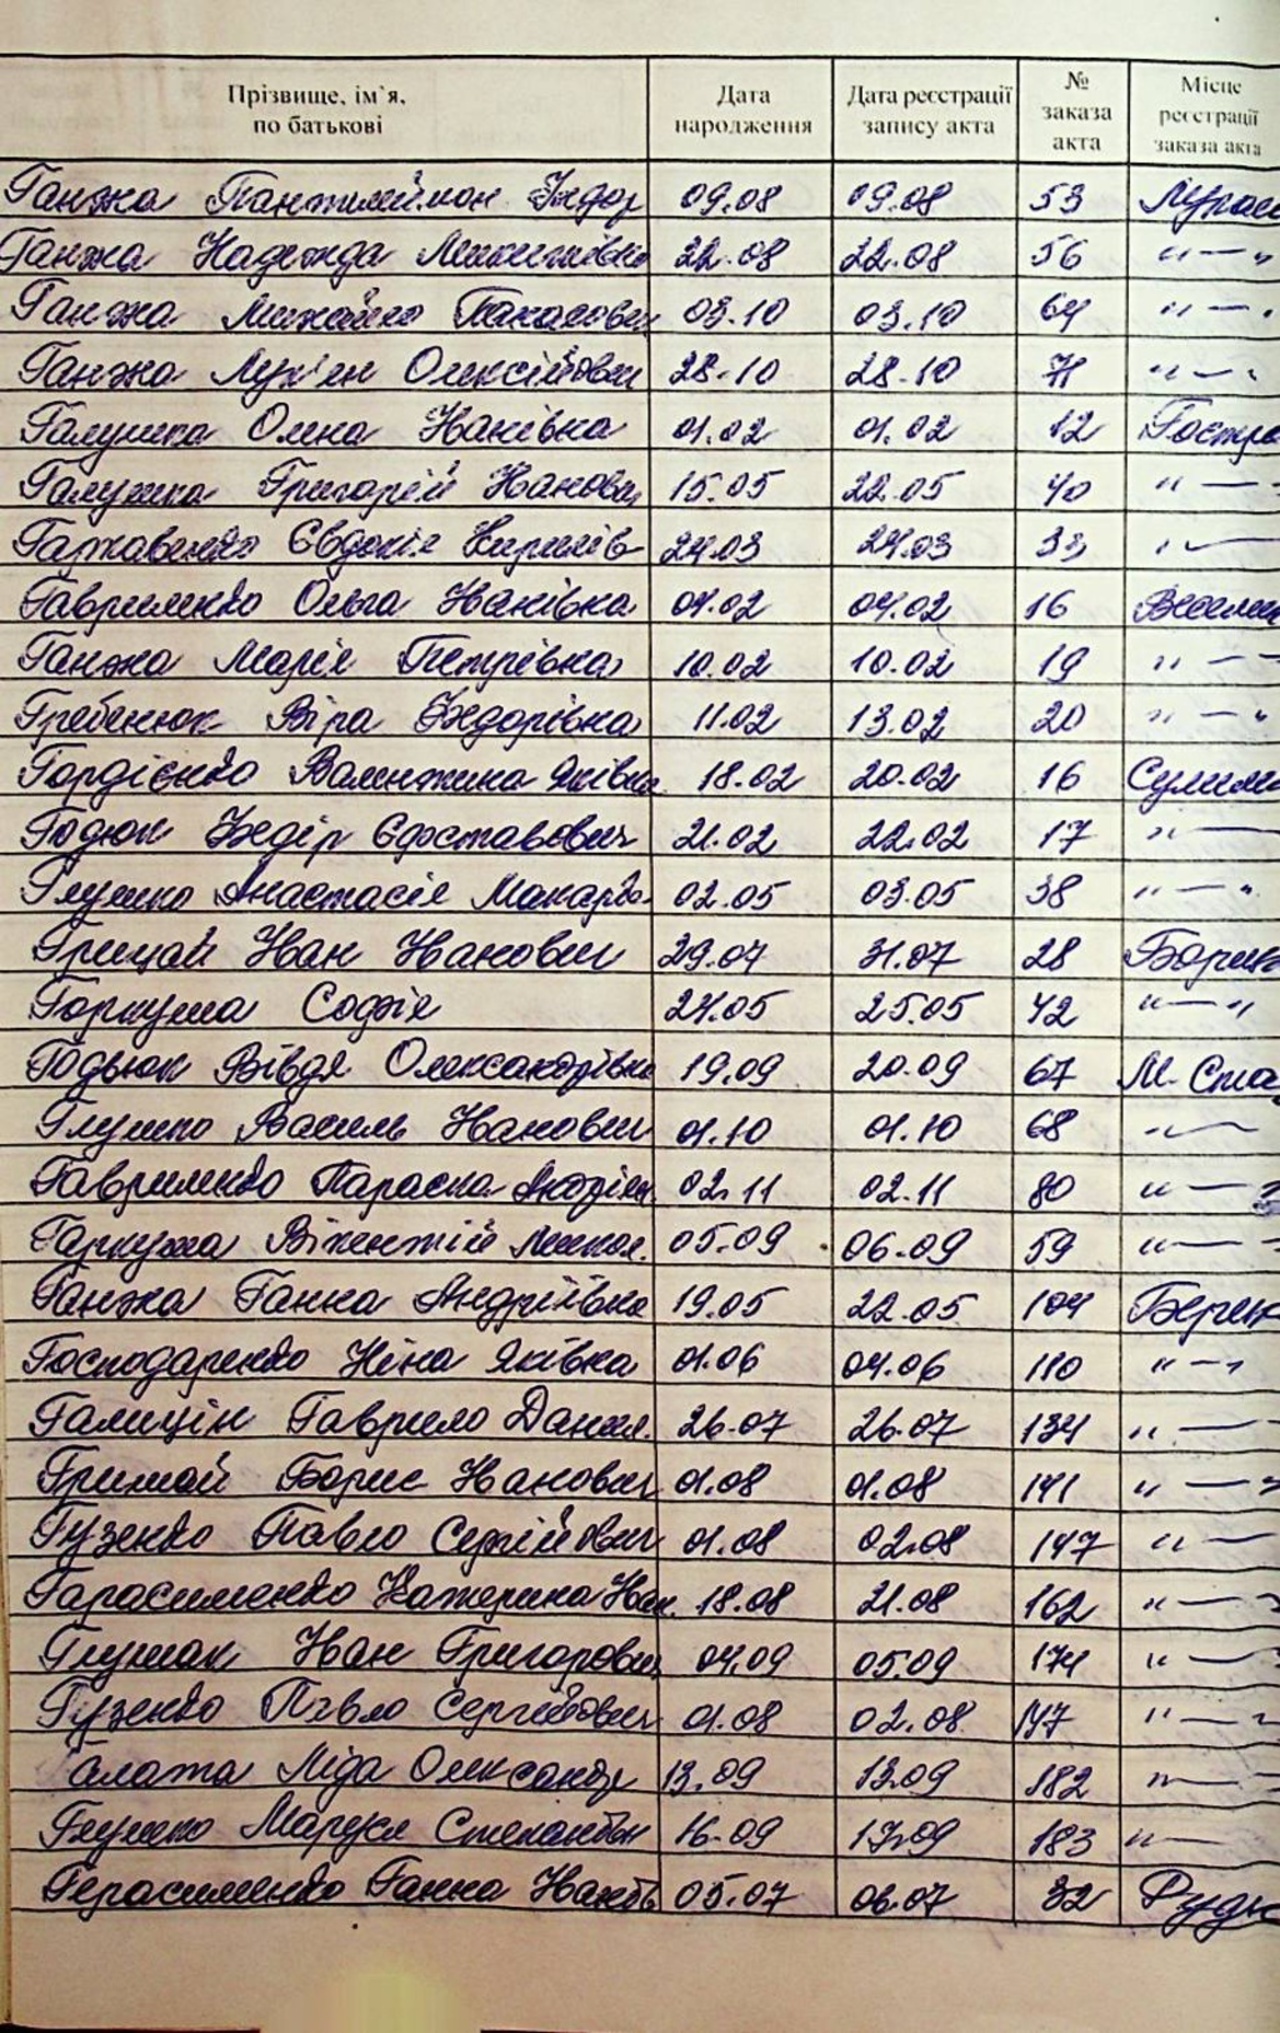 Прізвище, ім`я, по батькові | Дата народження | Дата реєстрації запису акта | № заказа акта | Місце реєстрації заказа акта
Ганжа Пантилеймон Федор 09.08 09.08 53
Ганжа Надежда 22.08 22.08 56 " — "
Ганжа Михайло 03.10 03.10 64 " — "
Ганжа Лук'ян Олексійович 28.10 28.10 71 " — "
Галушка Олена Іванівна 01.02 01.02 12 Гостро
Галушка Григорій Іванович 15.05 22.05 40 " —
Гаркавенко Євдокія Кирилів 24.03 24.03 33 " —
Гавриленко Ольга Іванівна 04.02 04.02 16 Веселин
Ганжа Марія Петрівна 10.02 10.02 19 " —
Гребенюк Віра Федорівна 11.02 13.02 20 " — "
Гордієнко Валентина Яківна 18.02 20.02 16 Сулим
Годюк Федір Єфставович 21.02 22.02 17 " —
Глушко Анастасія Макарів 02.05 03.05 38 " — "
Грицай Іван Іванович 29.07 31.07 28 Борин
Горкуша Софія 24.05 25.05 42 " — "
Годьюк Вівдя Олександрівна 19.09 20.09 67 М. Ста
Глушко Василь Іванович 01.10 01.10 68 " —
Гавриленко Параска Андріїв 02.11 02.11 80 " —
Гаркуша Вікентій Микол. 05.09 06.09 59 " —
Ганжа Ганна Андріївна 19.05 22.05 104 Берек
Господаренко Ніна Яківна 01.06 04.06 110 " — "
Галицін Гаврило Данил. 26.07 26.07 134 " —
Гримай Борис Іванович 01.08 01.08 141 " — "
Гузенко Павло Сергійович 01.08 02.08 147 " —
Гарасименко Катерина Іван. 18.08 21.08 162 " —
Глушак Іван Григорович 04.09 05.09 174 " —
Гузенко Павло Сергійович 01.08 02.08 147 " —
Галата Ліда Олександр 13.09 13.09 182 " —
Глушко Маруся Степанівн 16.09 17.09 183 " —
Герасименко Ганна Іванів 05.07 06.07 32 Рудк